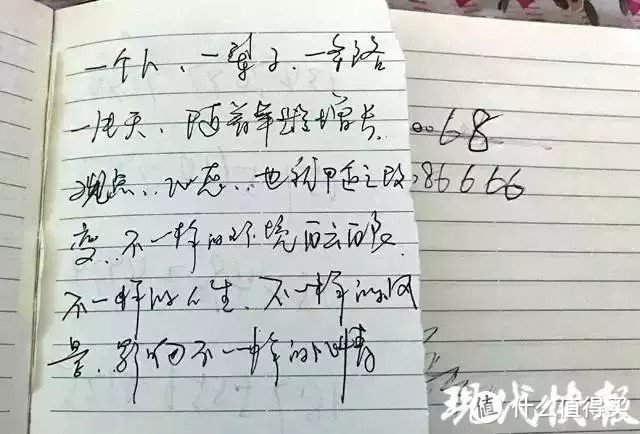 一个人、一辈子、一条路
一片天、随着年龄增长
观点、心态、也随即适之改
变、不一样的环境
不一样的人生、不一样的风
景、影响不一样的心情
68
86666
现代快报
值 什么值得买